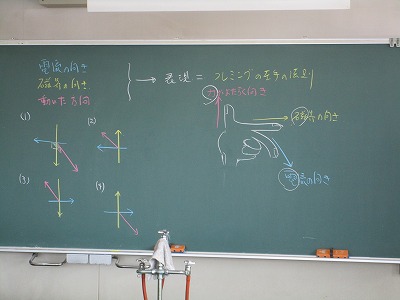 電流の向き
磁界の向き
動いた方向
表現 = フレミングの左手の法則
力がはたらく向き
磁界の向き
電流の向き
(1)
(2)
(3)
(4)